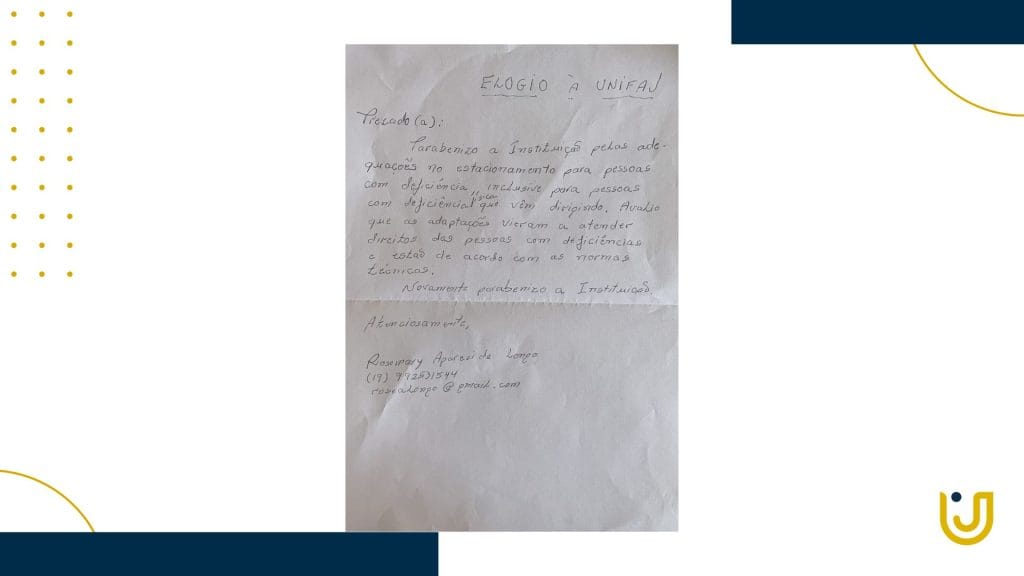 ELOGIO À UNIFAJ
Prezado(a):
Parabenizo a Instituição pelas ade-
quações no estacionamento para pessoas
com deficiência, inclusive para pessoas
com deficiência física que vêm dirigindo. Avalio
que as adaptações vieram a atender
direitos das pessoas com deficiências
e estão de acordo com as normas
técnicas.
Novamente parabenizo a Instituição.
Atenciosamente,
Rosemary Aparecida Longo
(19) 992531544
rosealongo@gmail.com